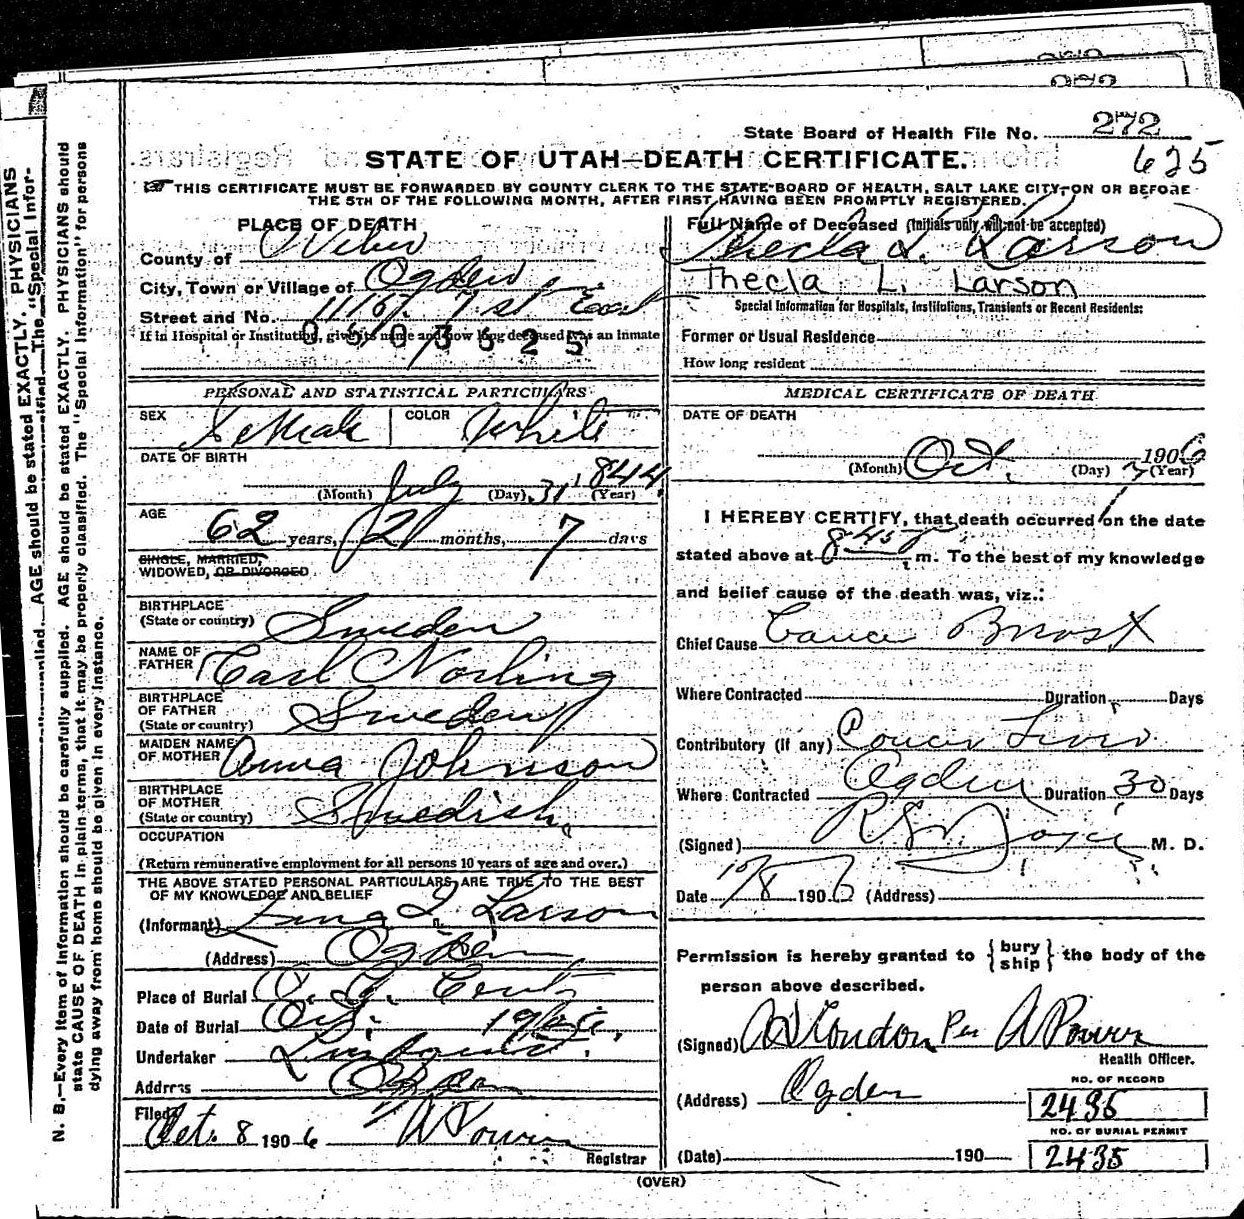 State Board of Health File No. 272
625
STATE OF UTAH—DEATH CERTIFICATE.
THIS CERTIFICATE MUST BE FORWARDED BY COUNTY CLERK TO THE STATE BOARD OF HEALTH, SALT LAKE CITY, ON OR BEFORE
THE 5TH OF THE FOLLOWING MONTH, AFTER FIRST HAVING BEEN PROMPTLY REGISTERED.
PLACE OF DEATH
County of Weber
City, Town or Village of Ogden
Street and No. 7 st East
If in Hospital or Institution, give its name and how long deceased was an inmate
0603625
PERSONAL AND STATISTICAL PARTICULARS
SEX Female COLOR White
DATE OF BIRTH
(Month) July (Day) 31 (Year) 1844
AGE
62 years, 2 months, 7 days
SINGLE, MARRIED,
WIDOWED, OR DIVORCED
BIRTHPLACE
(State or country) Sweden
NAME OF
FATHER Carl Norling
BIRTHPLACE
OF FATHER
(State or country) Sweden
MAIDEN NAME
OF MOTHER Anna Johnson
BIRTHPLACE
OF MOTHER
(State or country) Swedish
OCCUPATION
(Return remunerative employment for all persons 10 years of age and over.)
THE ABOVE STATED PERSONAL PARTICULARS ARE TRUE TO THE BEST
OF MY KNOWLEDGE AND BELIEF
(Informant) Larson
(Address) Ogden
Place of Burial O. C. Cemt
Date of Burial Oct. 1906
Undertaker Lindquist
Address Ogden
Filed
Oct. 8 1906 A Power
Registrar
Full Name of Deceased (Initials only will not be accepted)
Thecla L. Larson
Thecla L. Larson
Special Information for Hospitals, Institutions, Transients or Recent Residents:
Former or Usual Residence
How long resident
MEDICAL CERTIFICATE OF DEATH
DATE OF DEATH
(Month) Oct. (Day) 7 1906 (Year)
I HEREBY CERTIFY, that death occurred on the date
stated above at 8 45 P m. To the best of my knowledge
and belief cause of the death was, viz.:
Chief Cause Cancer Breast
Where Contracted Duration Days
Contributory (if any) Cancer Liver
Where Contracted Ogden Duration 30 Days
(Signed) M. D.
Date 10/8 1906 (Address)
Permission is hereby granted to { bury ship } the body of the
person above described.
(Signed) London Per A Power
Health Officer.
(Address) Ogden
NO. OF RECORD
2435
NO. OF BURIAL PERMIT
(Date) 190 2435
(OVER)
N. B.—Every item of information should be carefully supplied. AGE should be stated EXACTLY. PHYSICIANS should
state CAUSE OF DEATH in plain terms, that it may be properly classified. The "Special Information" for persons
dying away from home should be given in every instance.
AGE should be stated EXACTLY. PHYSICIANS
The "Special Infor-